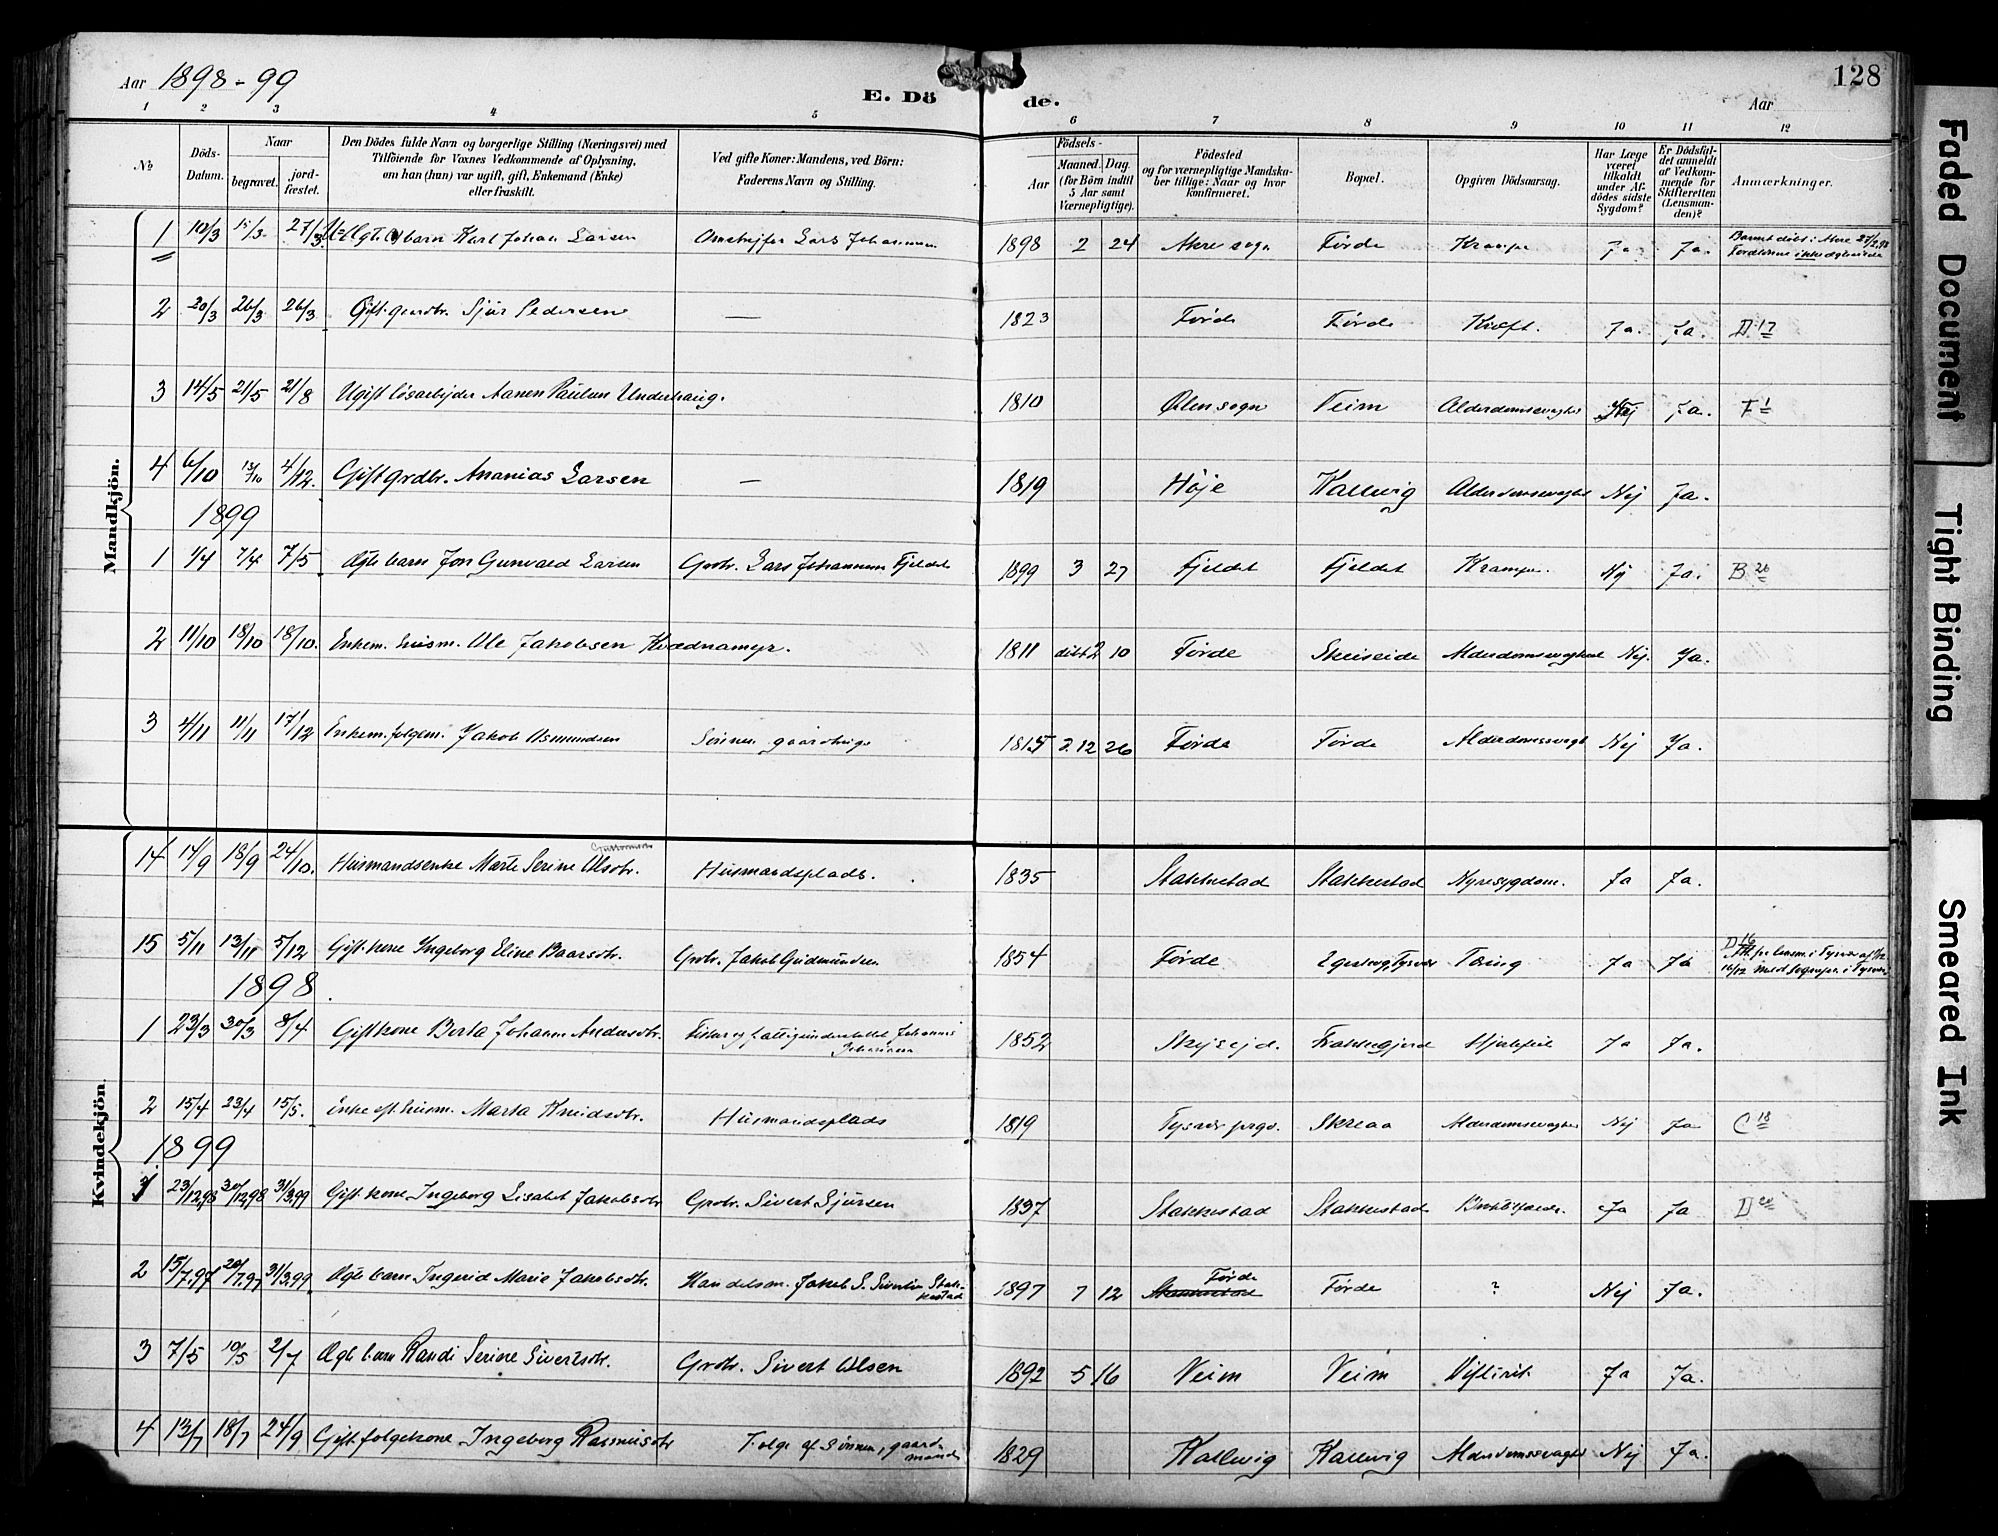 Aar 1898-99
E. Dö de.
Aar
128
1 2 3 4 5 6 7 8 9 10 11 12
No
Döds-Datum.
Naar
begravet.
jord-fæstet.
Den Dödes fulde Navn og borgerlige Stilling (Næringsvei) med
Tilföiende for Voxnes Vedkommende af Oplysning,
om han (hun) var ugift, gift, Enkemand (Enke)
eller fraskilt.
Ved gifte Koner: Mandens, ved Börn:
Faderens Navn og Stilling.
Födsels-
Aar
Maaned.
Dag.
(for Börn indtil
5 Aar samt
Værnepligtige).
Födested
og for værnepligtige Mandska-
ber tillige: Naar og hvor
konfirmeret.
Bopæl.
Opgiven Dödsaarsag.
Har Læge
været
tilkaldt
under Af-
dödes sidste
Sygdom?
Er Dödsfal-
det anmeldt
af Vedkom-
mende for
Skifteretten
(Lensman-
den)?
Anmærkninger.
Mandkjön.
1 10/3 15/3 27/3 barn Karl Johan Larsen Lars Johannesen 1898 2 24 Akre sogn Førde Krampe Ja Ja. Barnet døbt i Akre 27/2 98
Forældrene ikke
2 20/3 26/3 26/3 Gift gaardbr. Sjur Pedersen — 1823 Førde Førde Kræft. Ja. Ja. D. 17
3 14/5 21/5 21/8 Ugift løsarbejder Aanen Paulsen Underhaug. 1810 Ølen sogn Veim Alderdomssvaghed Nej Ja. F 1
4 6/10 13/10 4/12. Gift grdbr. Ananias Larsen — 1819 Høje Kallevig Alderdomssvaghed Nej Ja.
1899
1 1/4 7/4 7/5 Ægte barn Jon Gunvald Larsen Grdbr. Lars Johannesen Fjeldet 1899 3 27 Fjeldet Fjeldet Krampe. Nej Ja. B 26
2 11/10 18/10 18/10. Enkem. husm. Ole Jakobsen Kvednamyr. 1811 døbt 2 10 Førde Skeiseide Alderdomssvaghed Nej. Ja.
3 4/11 11/11 17/12 Enkem. folgem. Jakob Asmundsen Sønnen gaardbruger 1815 2.12 26 Førde Førde Alderdomssvagh. Nej Ja.
Kvindekjön.
14 14/9 18/9 24/10. Husmandsenke Marte Serine Olsdtr. Husmandsplads. 1835 Stakkestad Stakkestad Nyresygdom. Ja Ja.
15 5/11 13/11 5/12 Gift kone Ingeborg Eline Baarsdtr. Grdbr. Jakob Gudmundsen 1854 Førde Tysvær Tæring Ja Ja D 16
1898.
1 23/3 30/3 8/4 Gift kone Berta Johanne Andersdtr. Fisker og fattigunderstøttet Johannes
Johannesen 1852 Skejsejd. Frakkagjerd Hjertefeil Ja Ja.
2 15/4 23/4 15/5. Enke eft. husm. Marta Knudsdtr. Husmandsplads 1819 Tysvær prgd. Skreaa Alderdomssvaghed Nej Ja C 18
1899
1 23/12.98 30/12.98 31/3.99 Gift kone Ingeborg Lisabet Jakobsdtr Grdbr. Sivert Sjursen 1837 Stakkestad Stakkestad Ja Ja D 20
2 15/7.97 20/7.97 31/3.99 Ægte barn Ingerid Marie Jakobsdtr. Handelsm. Jakob S. Stak-
kestad 1897 7 12 Førde Førde ? Nej Ja.
3 7/5 10/5 2/7 Ægte barn Randi Serine Sivertsdtr. Grdbr. Sivert Olsen 1892 5 16 Veim Veim Difterit. Ja Ja.
4 13/7 18/7 24/9 Gift folgekone Ingeborg Rasmusdtr Folge af Sønnen, gaard-
mand 1829 Kallevig Kallevig Alderdomssvaghed Nej Ja.
Faded Document
Tight Binding
Smeared Ink